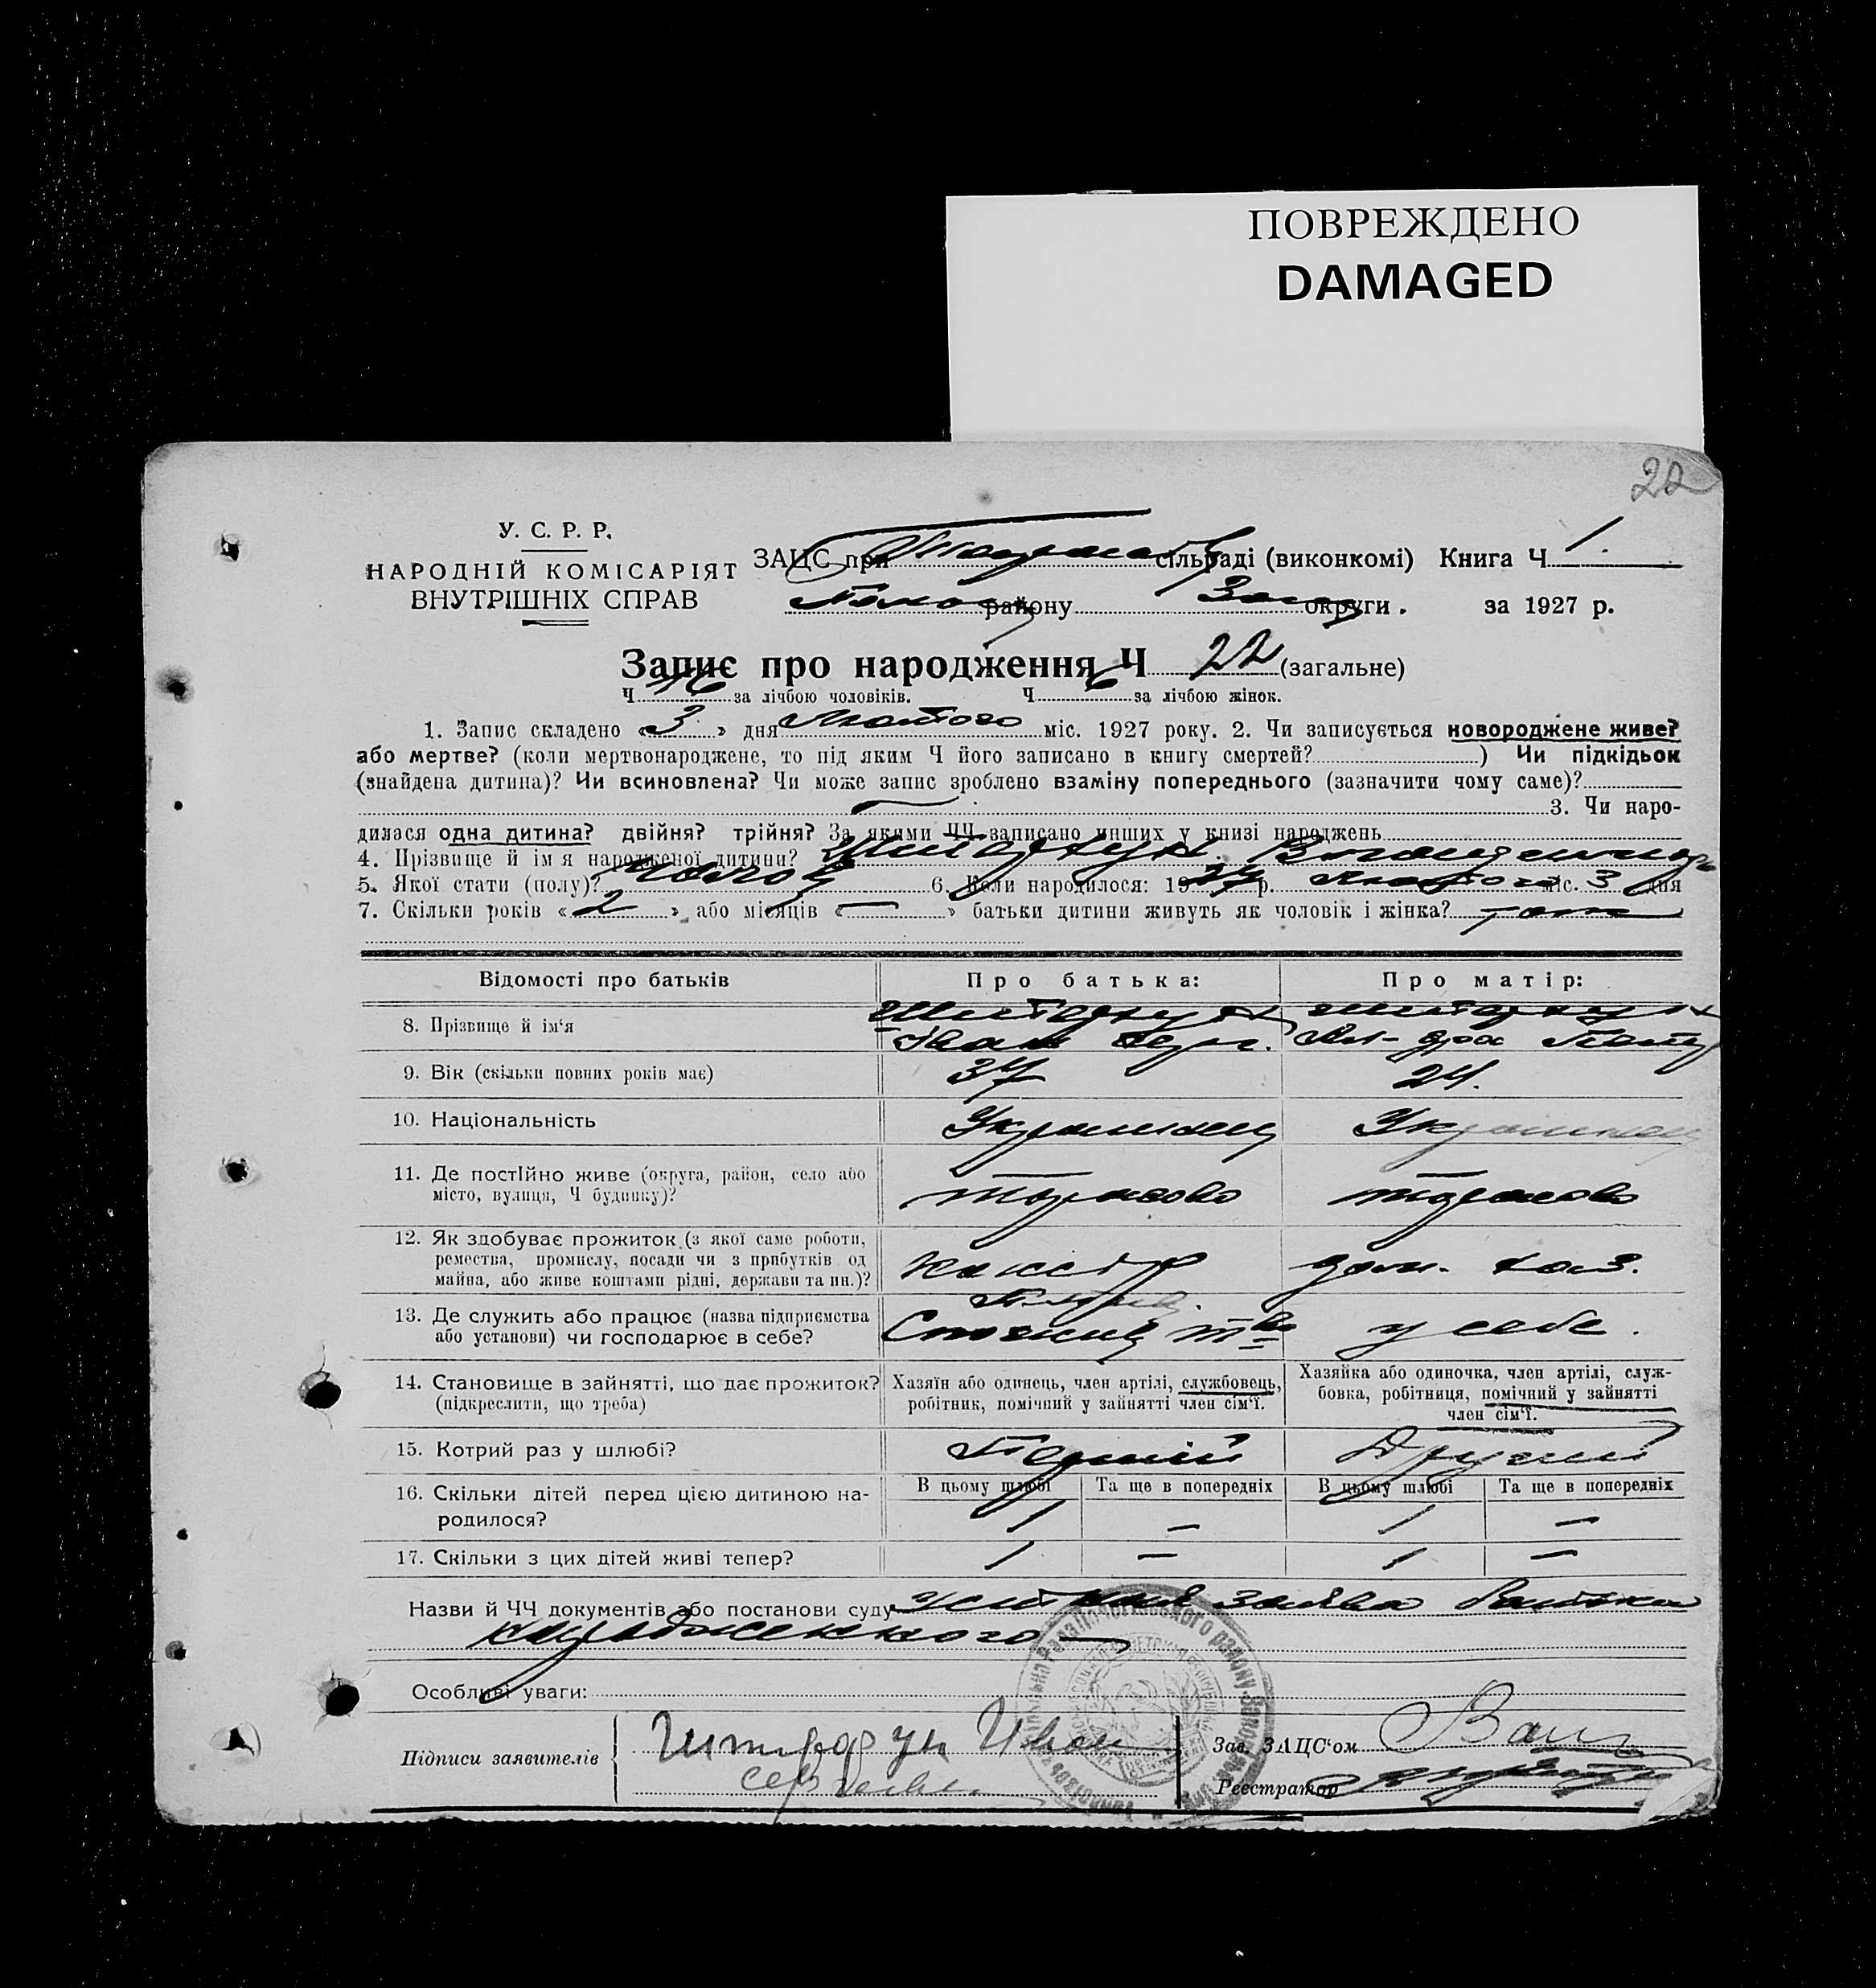 ПОВРЕЖДЕНО
DAMAGED
22
У. С. Р. Р.
НАРОДНІЙ КОМІСАРІЯТ
ВНУТРІШНІХ СПРАВ
ЗАЦС при сільраді (виконкомі) Книга Ч 1.
району округи. за 1927 р.
Запис про народження Ч 22 (загальне)
Ч 16 за лічбою чоловіків. Ч 6 за лічбою жінок.
1. Запис складено «3» дня Лютого міс. 1927 року. 2. Чи записується новороджене живе?
або мертве? (коли мертвонароджене, то під яким Ч його записано в книгу смертей? ) Чи підкідьок
(знайдена дитина)? Чи всиновлена? Чи може запис зроблено взаміну попереднього (зазначити чому саме)?
3. Чи наро-
дилася одна дитина? двійня? трійня? За якими ЧЧ записано инших у книзі народжень
4. Прізвище й ім'я народженої дитини?
5. Якої стати (полу)? 6. Коли народилося: 1927 р. Лютого міс. 3 дня
7. Скільки років «2» або місяців «—» батьки дитини живуть як чоловік і жінка? так
Відомості про батьків Про батька: Про матір:
8. Прізвище й ім'я
Іван
9. Вік (скільки повних років має) 37 24.
10. Національність Українець Українка
11. Де постійно живе (округа, район, село або
місто, вулиця, Ч будинку)?
12. Як здобуває прожиток (з якої саме роботи,
ремества, промислу, посади чи з прибутків од
майна, або живе коштами рідні, держави та ин.)? дом. хаз.
13. Де служить або працює (назва підприємства
або установи) чи господарює в себе? у себе.
14. Становище в зайнятті, що дає прожиток?
(підкреслити, що треба)
Хазяїн або одинець, член артілі, службовець,
робітник, помічний у зайнятті член сім'ї.
Хазяйка або одиночка, член артілі, служ-
бовка, робітниця, помічний у зайнятті
член сім'ї.
15. Котрий раз у шлюбі? Перший Другий
16. Скільки дітей перед цією дитиною на-
родилося?
В цьому шлюбі Та ще в попередніх В цьому шлюбі Та ще в попередніх
1 — 1 —
17. Скільки з цих дітей живі тепер? 1 — 1 —
Назви й ЧЧ документів або постанови суду Устная заява батька
народженного
Особливі уваги:
Підписи заявителів Иван
Зав. ЗАЦС'ом
Реєстратор